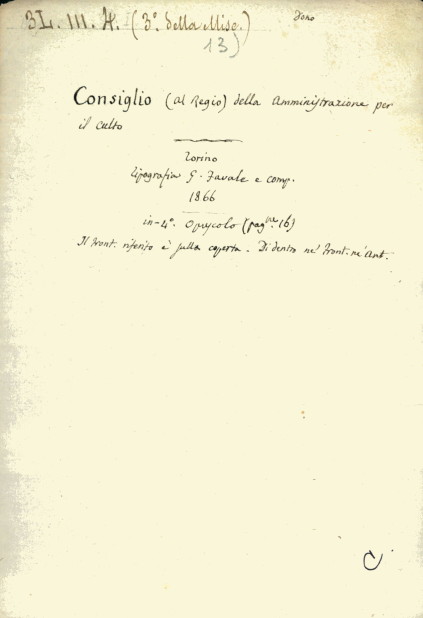 3L. III. 4. (3º. della Misc.)
13)
Dono
Consiglio (al Regio) della Amministrazione per
il culto
Torino
tipografia G. Favale e comp.
1866
in-4º. Opuscolo (pagne 16)
Il front. riferito è sulla coperta. Di dentro nè front. nè ant.
C